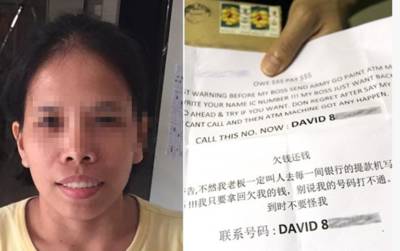 OWE $$$ PAY $$$
T WARNING BEFORE MY BOSS SEND ARMY GO PAINT ATM M
WRITE YOUR NAME IC NUMBER !!! MY BOSS JUST WANT BACK
O AHEAD & TRY IF YOU WANT. DON REGRET AFTER SAY M
CANT CALL AND THEN ATM MACHINE GOT ANY HAPPEN.
CALL THIS NO. NOW : DAVID 8
欠钱还钱
告,不然我老板一定叫人去每一间银行的提款机写
!!!我只要拿回欠我的钱,别说我的号码打不通。
到时不要怪我
联系号码: DAVID 8